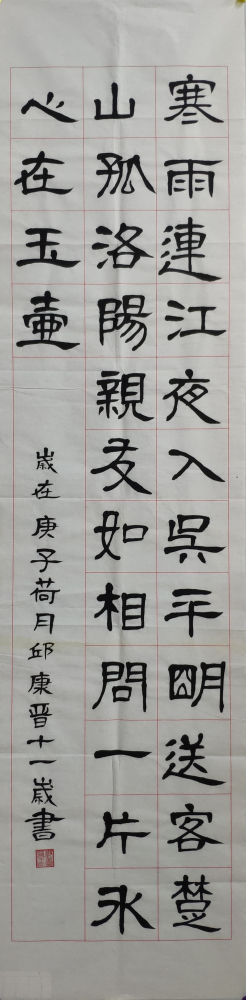 寒雨連江夜入吳平明送客楚
山孤洛陽親友如相問一片冰
心在玉壺
歲在庚子荷月邱康晉十一歲書